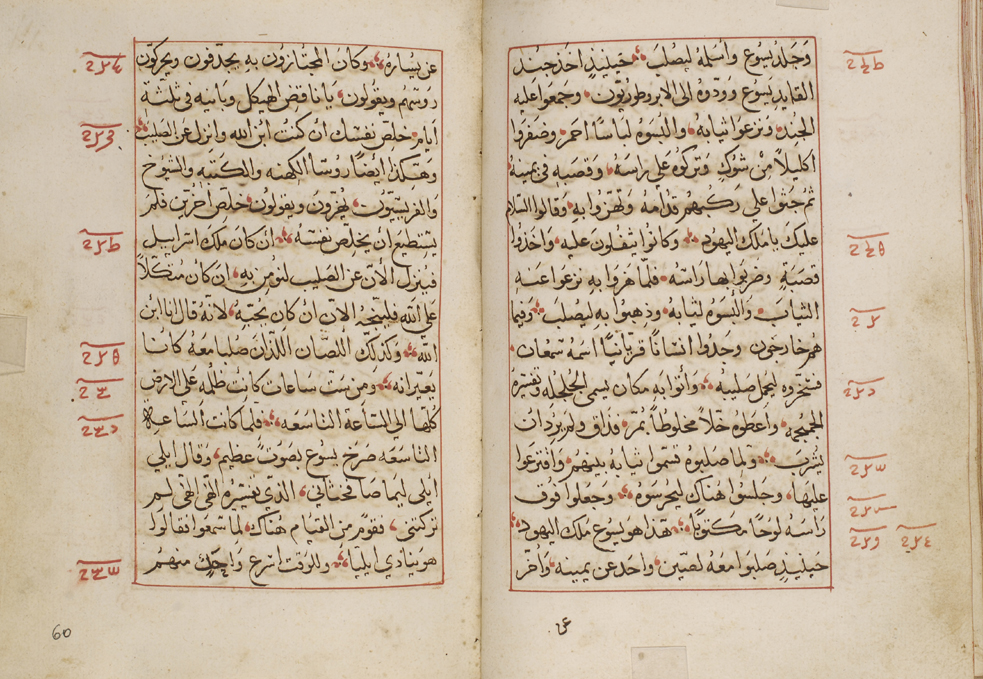 وجلد يسوع واسلمه ليصلب حينيذ اخذ جند
القايد يسوع وودوه الى الابروطوريون وجمعوا عليه
الجند ونزعوا ثيابه والبسوه لباسًا احمر وضفروا
اكليلاً من شوك وتركوه على راسه وقصبه فى يمينه
ثم جثوا على ركبهم قدامه ولهزوا به وقالوا السلام
عليك يا ملك اليهود وكانوا يتفلون عليه واخذوا
قصبة وضربوا بها راسه فلما هزوا به نزعوا عنه
الثياب والبسوه ثيابه وذهبوا به ليصلب وفيما
هم خارجون وجدوا انسانًا قريانيًا اسمه سمعان
فسخروه ليحمل صليبه واتوا به مكان يسمى الجلجله وتفسيره
الجمجمة واعطوه خلاً مخلوطًا بمر فذاق ولم يرد ان
يشرب ولما صلبوه قسموا ثيابه بينهم واقترعوا
عليها وجلسوا هناك ليحرسوه وجعلوا فوق
راسه لوحًا مكتوبًا هذا هو يسوع ملك اليهود
حينيذ صلبوا معه لصين واحد عن يمينه واخر
عن يساره وكان المجتازون به يجدفون ويحركون
روسهم ويقولون يا ناقض الهيكل وبانيه فى ثلثة
ايام خلص نفسك ان كنت ابن الله وانزل عن الصليب
وهكذا ايضًا روسا الكهنه والكتبه والشيوخ
والفريسيون يهزون ويقولون خلص اخرين فلم
يستطيع ان يخلص نفسه ان كان ملك اسراييل
فينزل الان عن الصليب لنومن به ان كان متكلاً
على الله فلينجيه الان ان كان يحبه لانه قال انا ابن
الله وكذلك اللصان اللذان صلبا معه كانا
يعيرانه ومن ست ساعات كانت ظلمه على الارض
كلها الى الساعة التاسعه فلما كانت الساعه
التاسعه صرخ يسوع بصوت عظيم وقال ايلي
ايلي ليما صافختاني الذي تفسيره الهى الهى لم
تركتنى فقوم من القيام هناك لما سمعوا قالوا
هو ينادي ايليا وللوقت اسرع واحد منهم
60